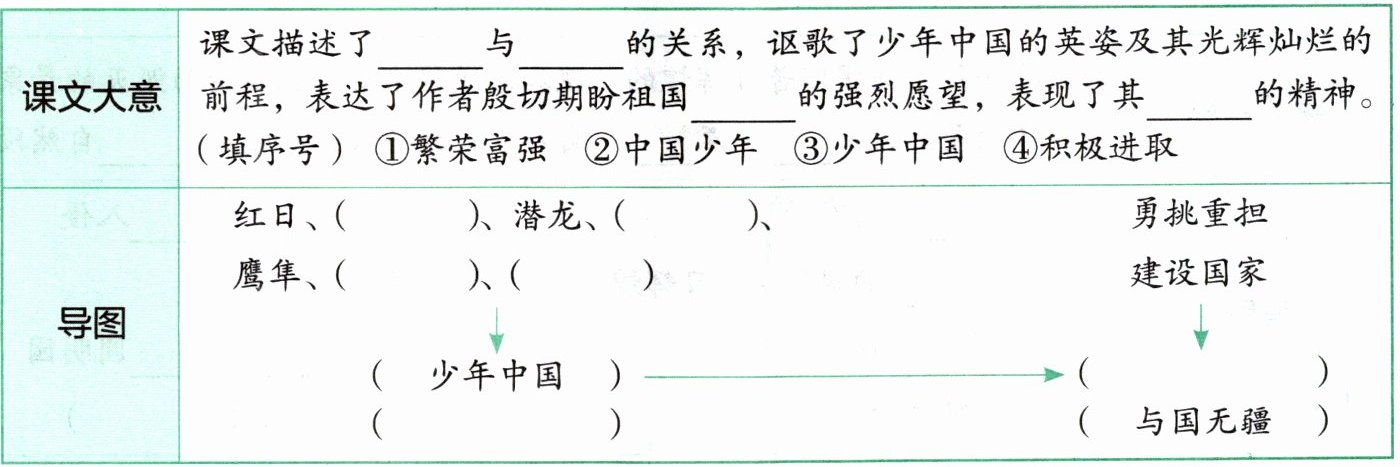 课文描述了______与______的关系，讴歌了少年中国的英姿及其光辉灿烂的
课文大意
前程，表达了作者殷切期盼祖国______的强烈愿望，表现了其______的精神。
（填序号） ①繁荣富强 ②中国少年 ③少年中国 ④积极进取
红日、（ ）、潜龙、（ ）、 勇挑重担
鹰隼、（ ）、（ ） 建设国家
导图
（ 少年中国 ） （ ）
（ ） （ 与国无疆 ）